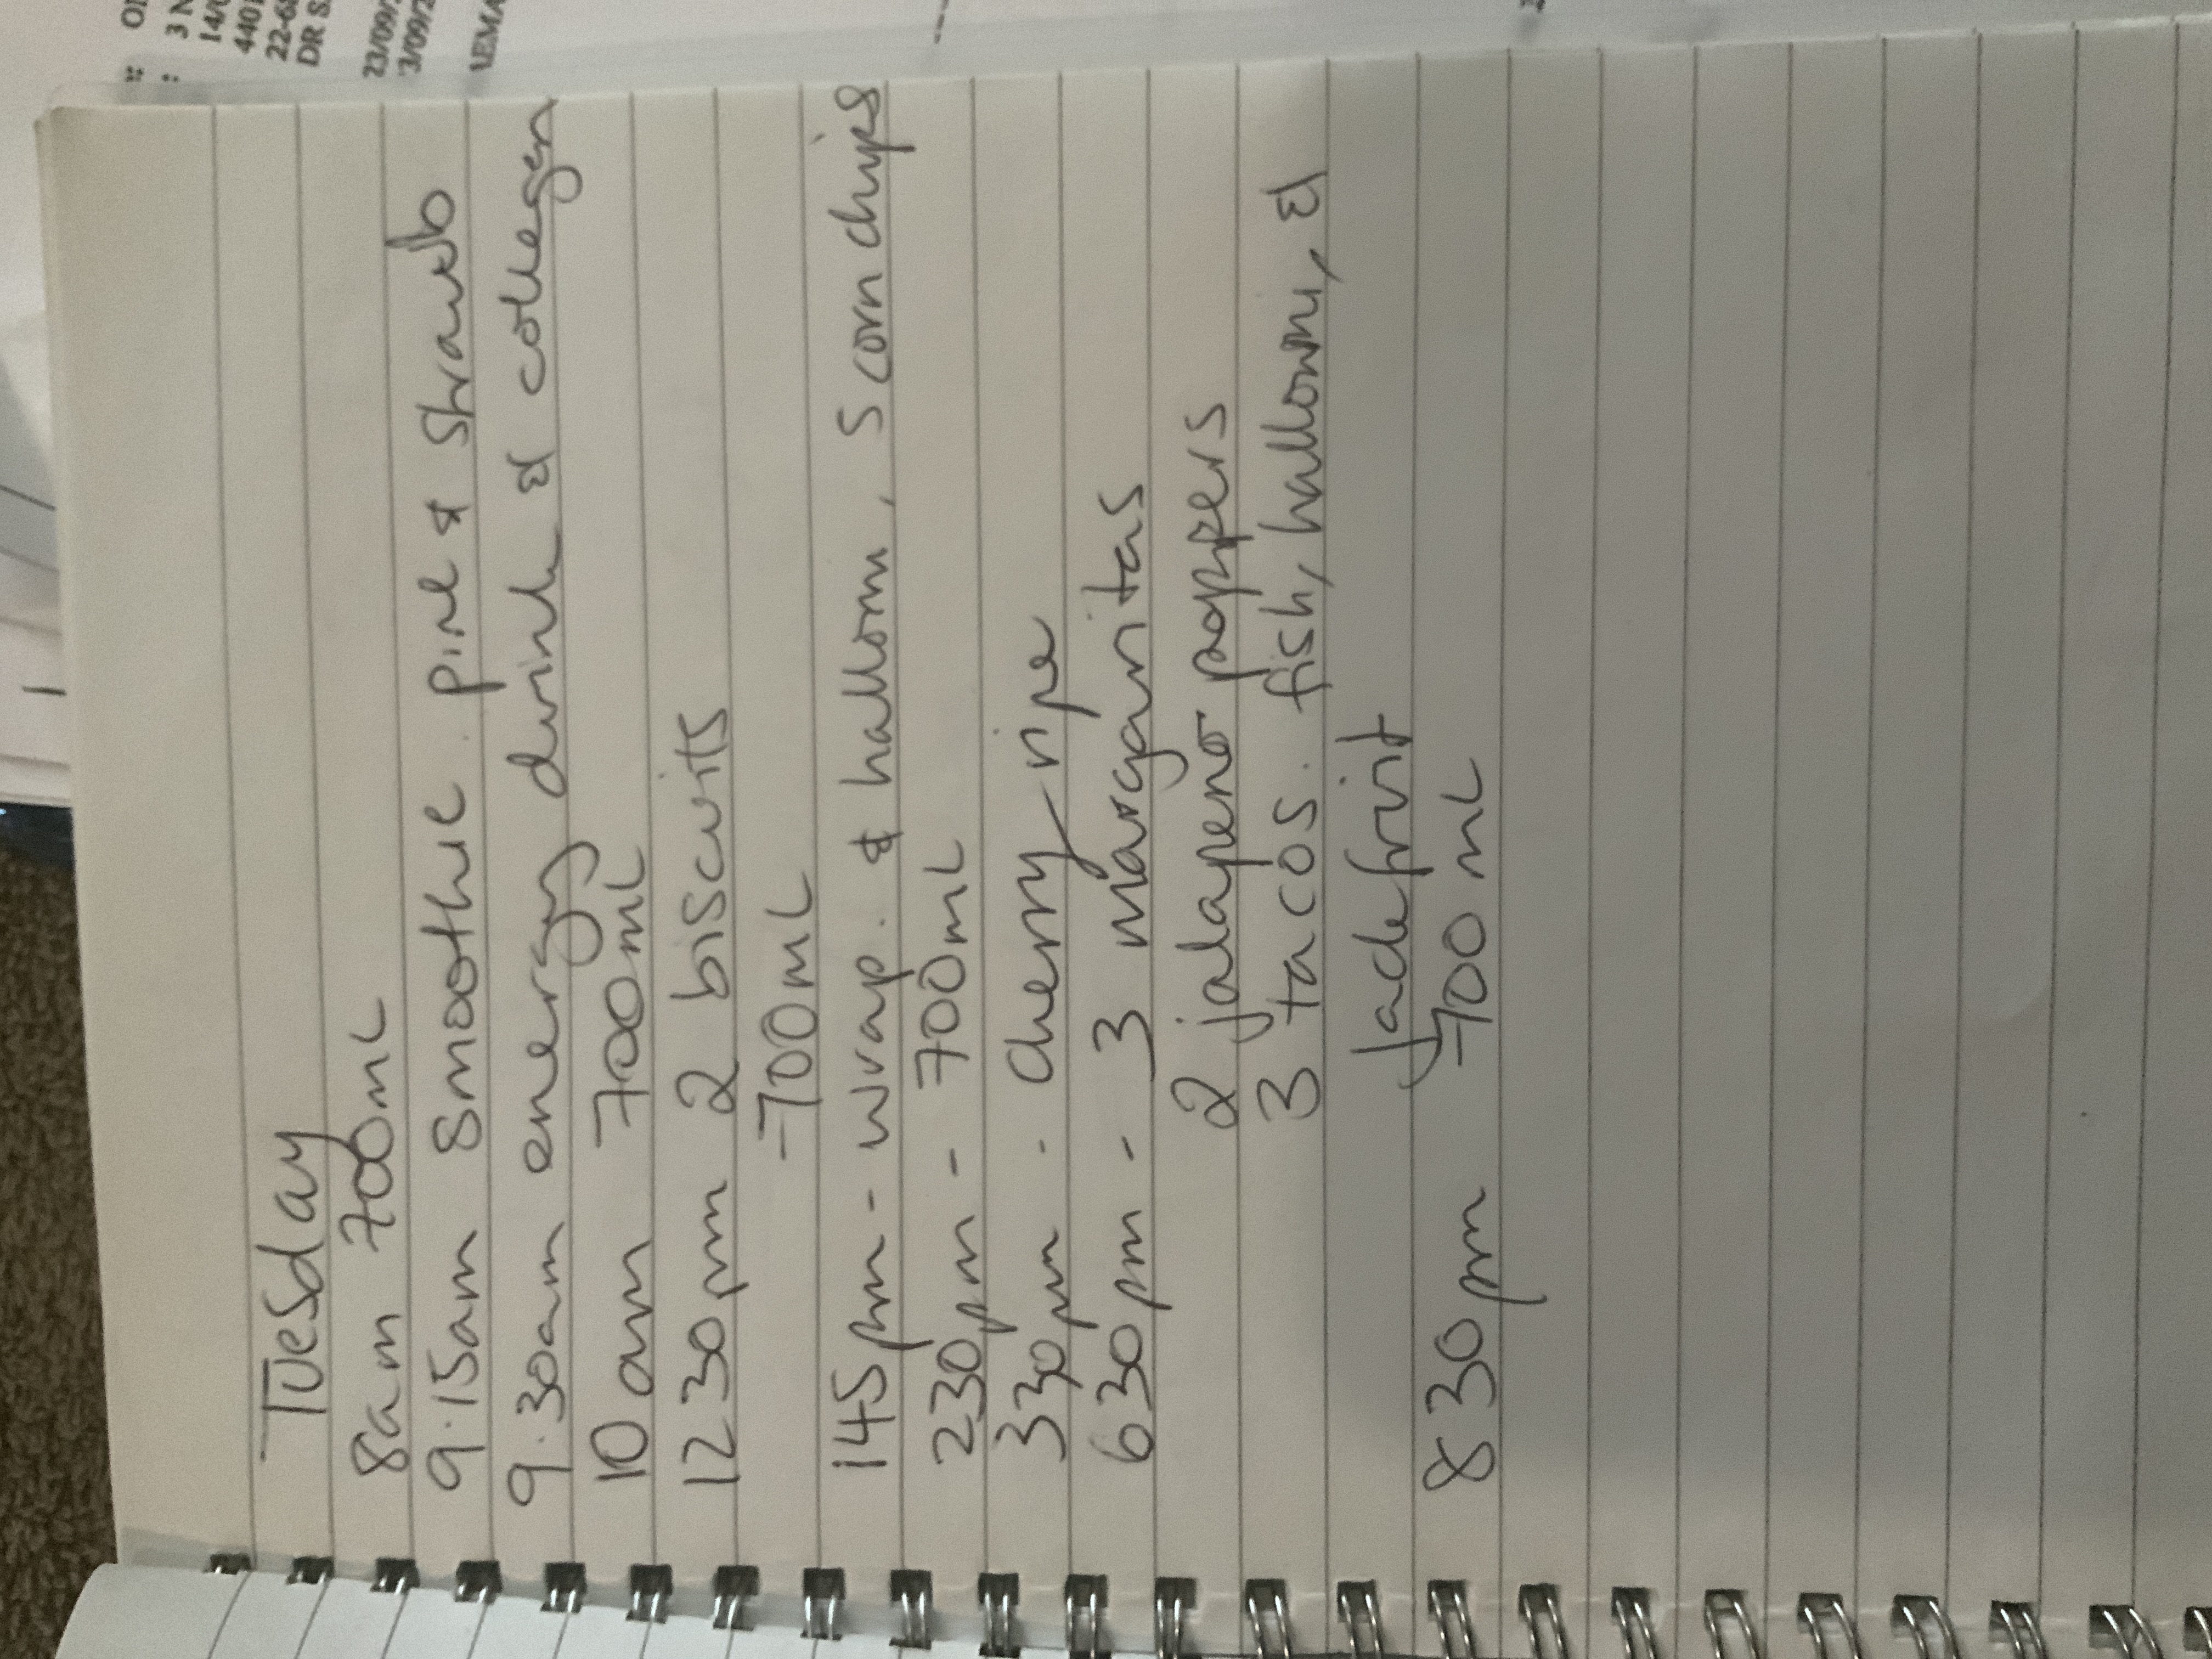 Tuesday
8am 700mL
9.15am Smoothie pine & Strawb
9.30am energy drink & collegen
10am 700mL
1230pm 2 biscuits
-700mL
145pm - wrap. & halloumi, 5 corn chips
230pm - 700mL
330pm - Cherry ripe
630pm - 3 margaritas
2 jalapeno poppers
3 tacos. fish, halloumi, &
Jackfruit
830pm 700mL
3 N
14/0
4401
22-68
DR S
23/09/
3/09/2